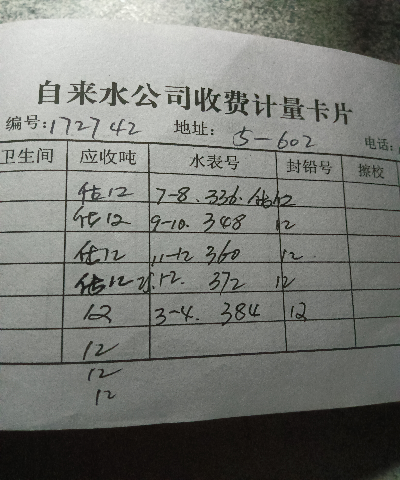 自来水公司收费计量卡片
编号:172742 地址: 5-602 电话:
卫生间 应收吨 水表号 封铅号 擦校
估12 7-8. 336. 估12
估12 9-10. 348 12
估12 11-12 360 12
估12 12. 372 12
12 3-4. 384 12
12
12
12